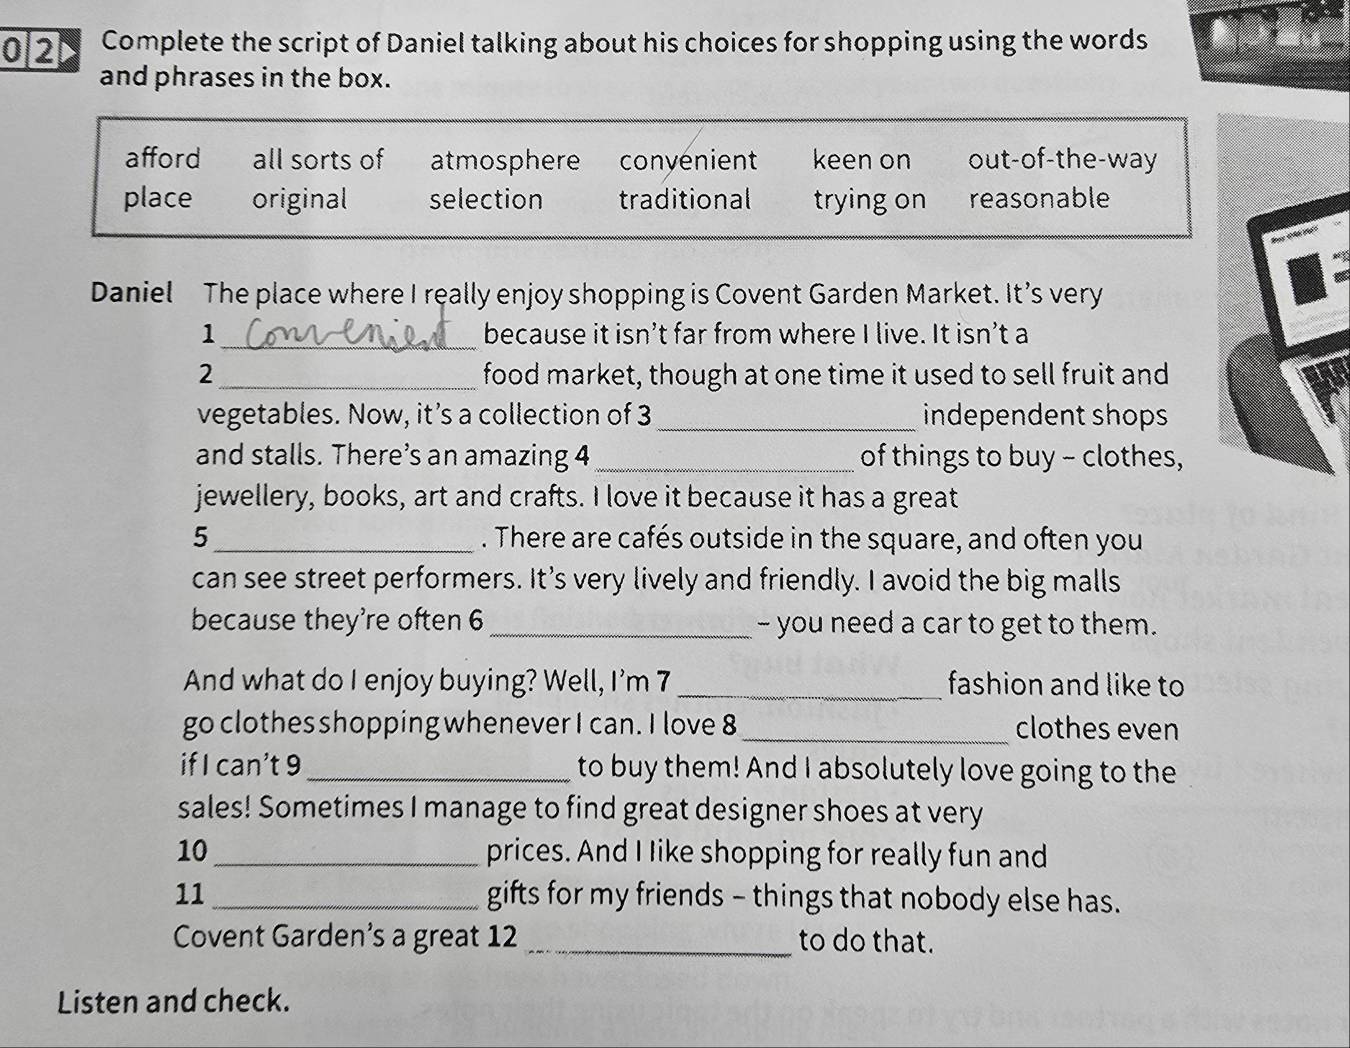 02 Complete the script of Daniel talking about his choices for shopping using the words
and phrases in the box.
afford all sorts of atmosphere convenient keen on out-of-the-way
place original selection traditional trying on reasonable
Daniel The place where I really enjoy shopping is Covent Garden Market. It's very
1 Convenient because it isn't far from where I live. It isn't a
2 ______ food market, though at one time it used to sell fruit and
vegetables. Now, it's a collection of 3 ______ independent shops
and stalls. There's an amazing 4 ______ of things to buy – clothes,
jewellery, books, art and crafts. I love it because it has a great
5 ______. There are cafés outside in the square, and often you
can see street performers. It's very lively and friendly. I avoid the big malls
because they're often 6 ______ – you need a car to get to them.
And what do I enjoy buying? Well, I'm 7 ______ fashion and like to
go clothes shopping whenever I can. I love 8 ______ clothes even
if I can't 9 ______ to buy them! And I absolutely love going to the
sales! Sometimes I manage to find great designer shoes at very
10 ______ prices. And I like shopping for really fun and
11 ______ gifts for my friends – things that nobody else has.
Covent Garden's a great 12 ______ to do that.
Listen and check.